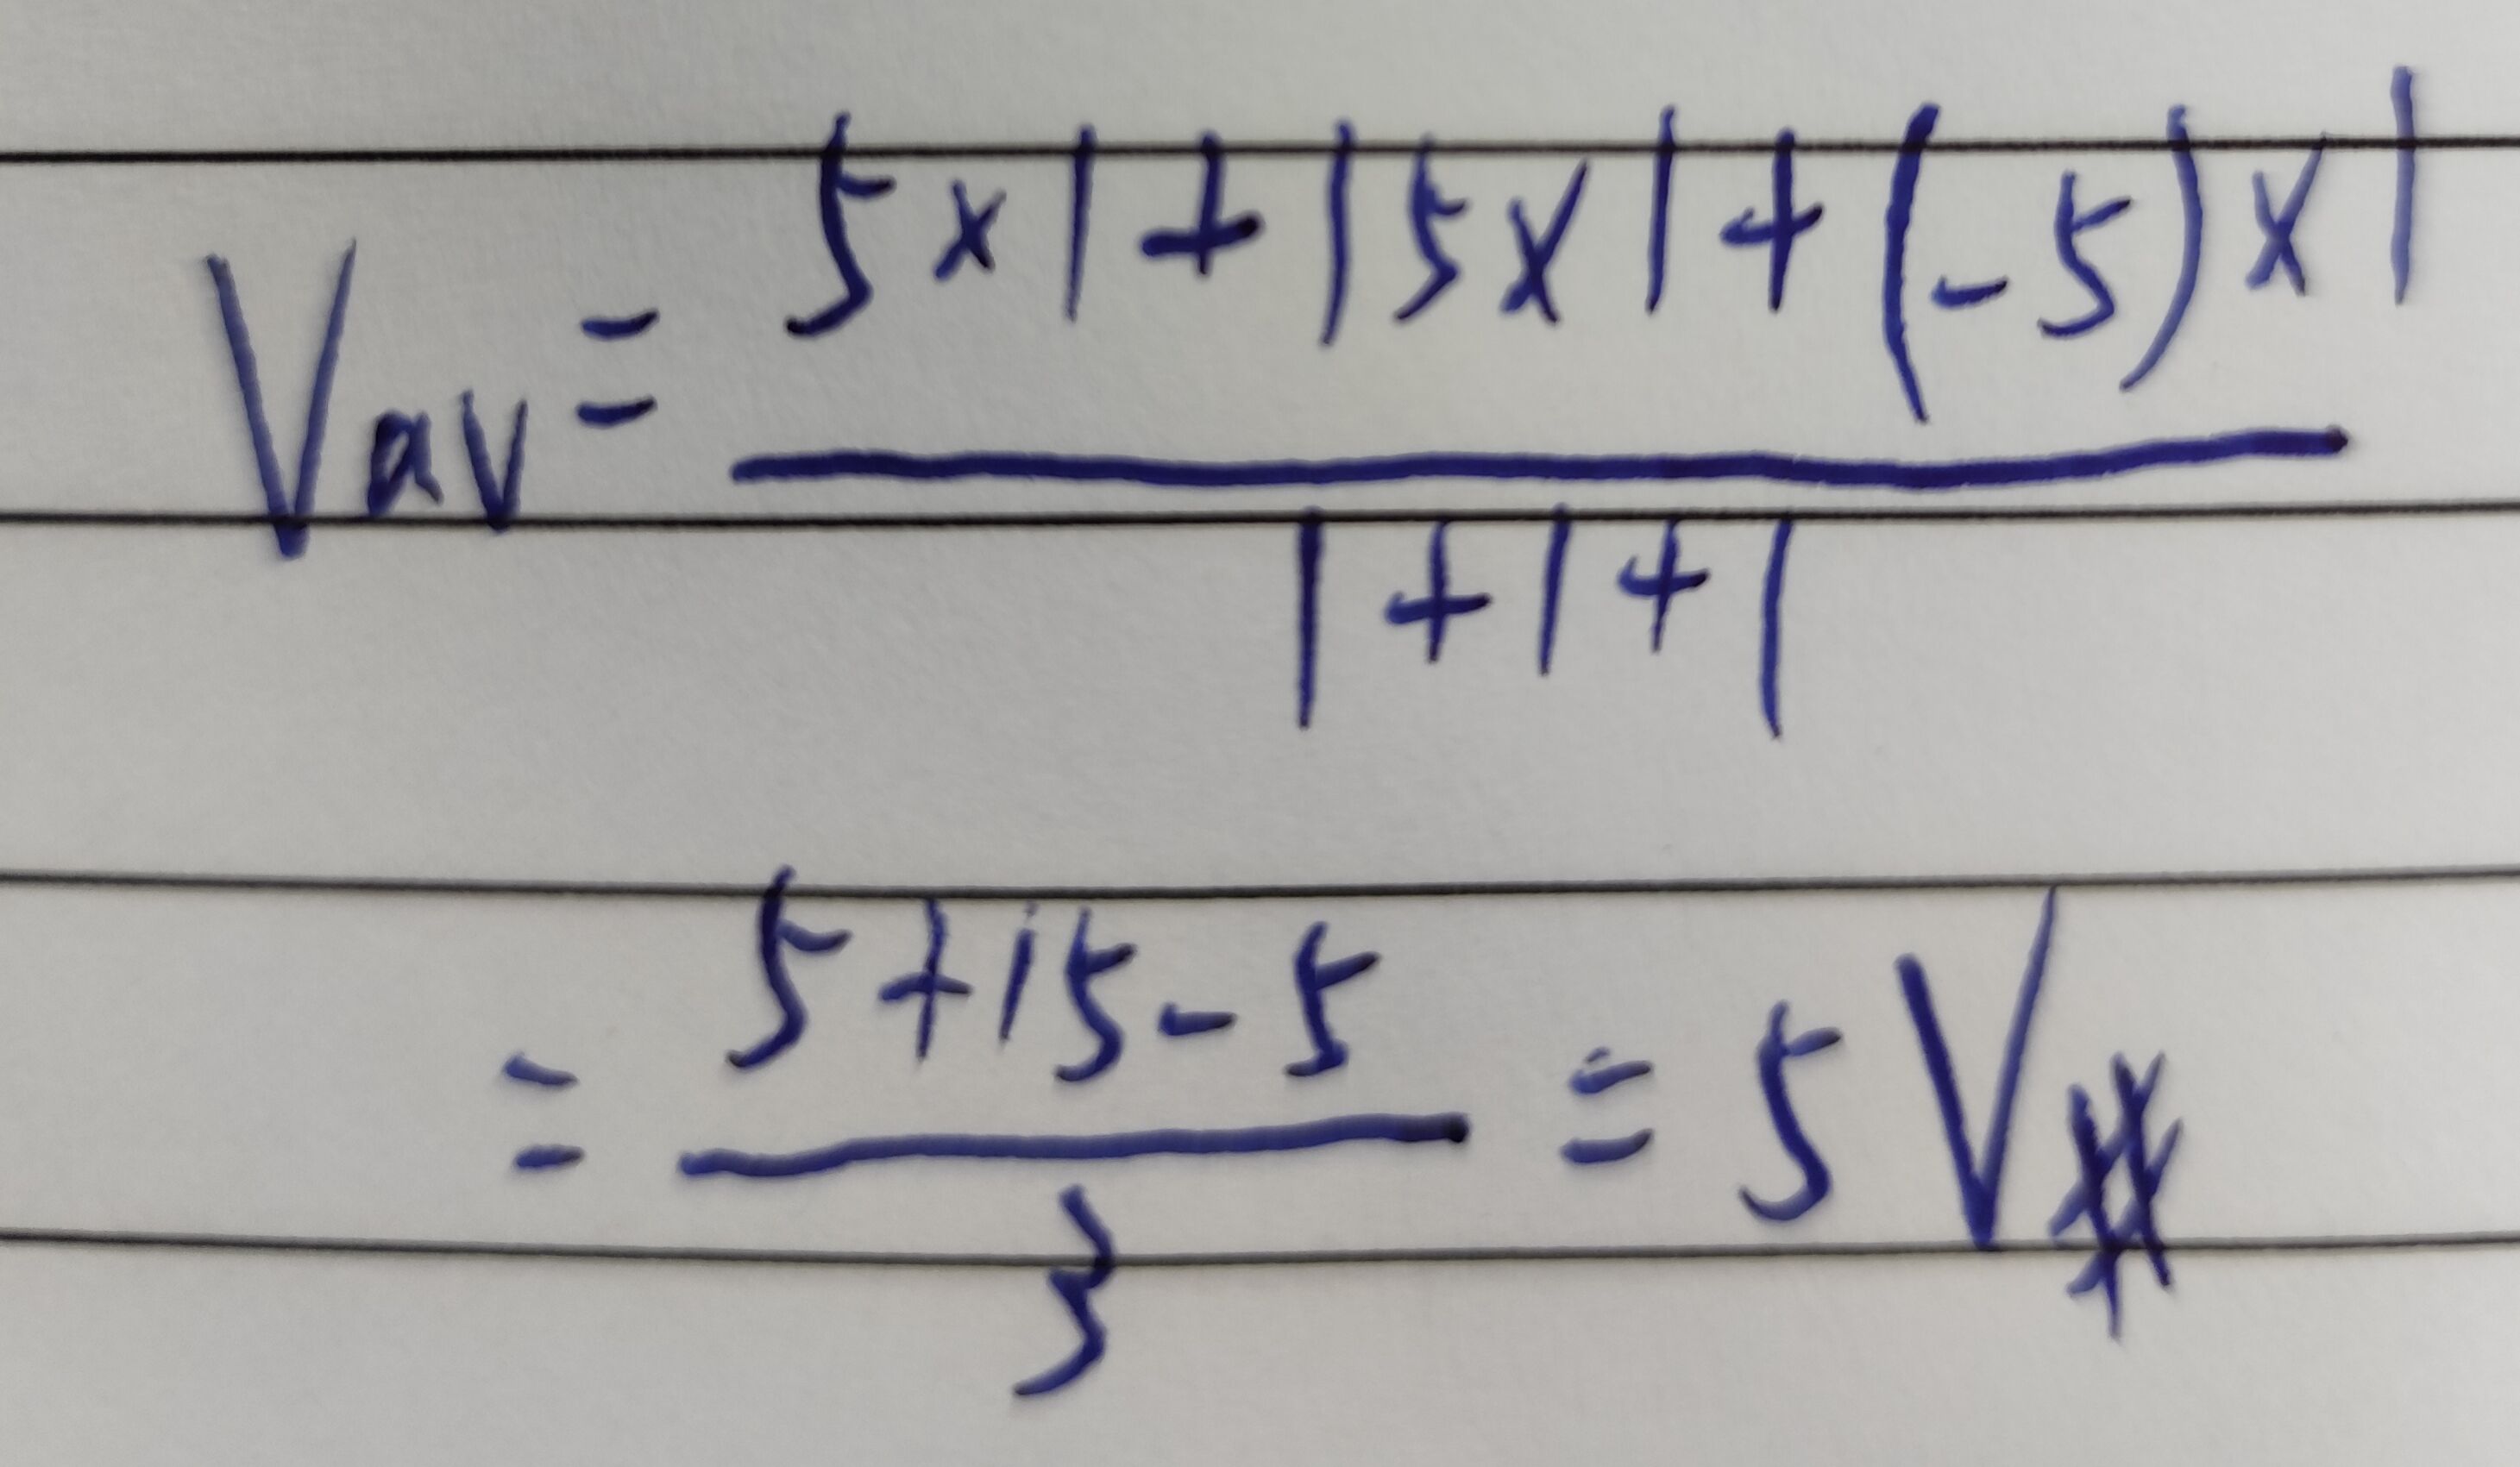 Vav = (5x1 + 15x1 + (-5)x1) / (1+1+1)
= (5+15-5) / 3 = 5V